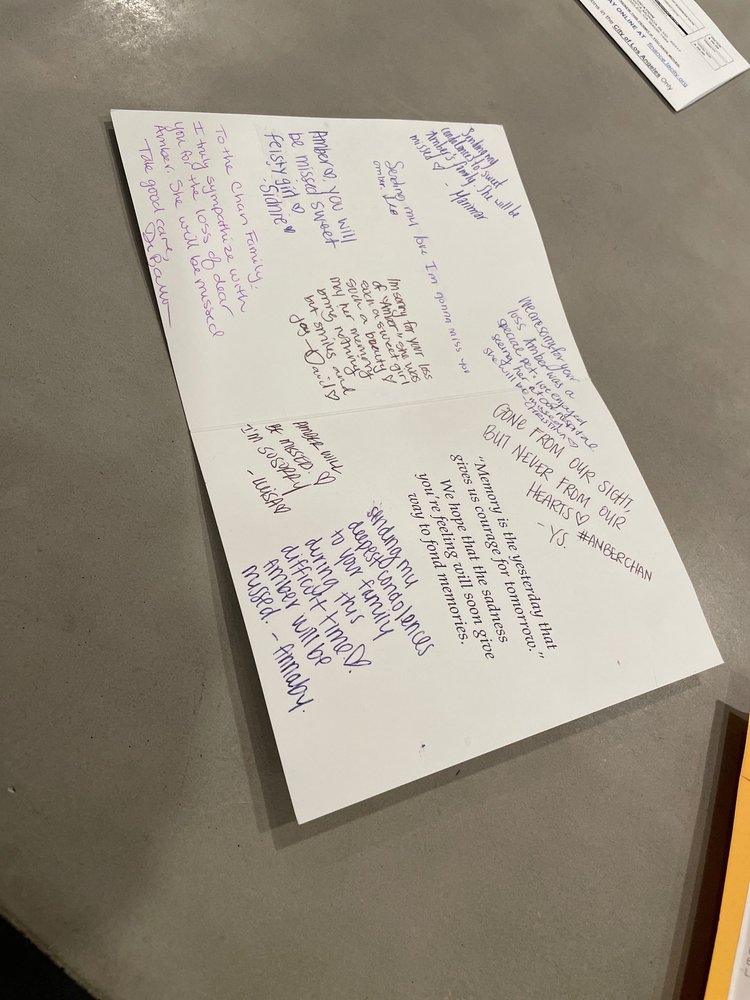 AY ONLINE AT finance.lacity.org
in the City of Los Angeles Only
Sending my
condolences to sweet
Amber's family. She will be
missed ♡
- Mammar
Sending my love I'm gonna miss you
amber. Leo
Amber♡, you will
be missed sweet
feisty girl ♡
- Sidnie ♡
To the Chan Family:
I truly sympathize with
you for the loss of dear
Amber. She will be missed
Take good care,
I'm sorry for your loss
of "Amber", she was
such a sweet girl &
such a beauty
may her memory
bring nothing
but smiles and
joy - David ♡
We are sorry for your
loss Amber was a
special pet. We enjoyed
seeing her at our
she will be missed
GONE FROM OUR SIGHT,
BUT NEVER FROM OUR
HEARTS♡ #AMBERCHAN
- Y.S.
AMBER WILL
BE MISSED. ♡
I'M SO SORRY
- LUISA♡
"Memory is the yesterday that
gives us courage for tomorrow."
We hope that the sadness
you're feeling will soon give
way to fond memories.
sending my
deepest condolences
to your family
during this
difficult time♡.
Amber will be
missed. - Annaby.